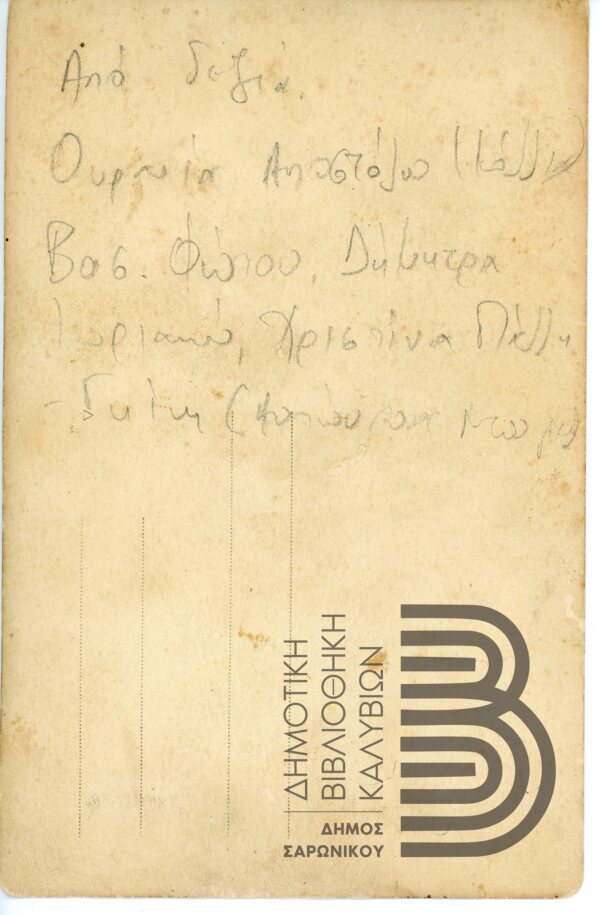 Από δεξιά.
Ουρανία Αποστόλου (Κόλλια)
Βασ. Φώτου, Δήμητρα
Κυριακού, Χριστίνα Πάλλη
ΔΗΜΟΤΙΚΗ
ΒΙΒΛΙΟΘΗΚΗ
ΚΑΛΥΒΙΩΝ
ΔΗΜΟΣ
ΣΑΡΩΝΙΚΟΥ